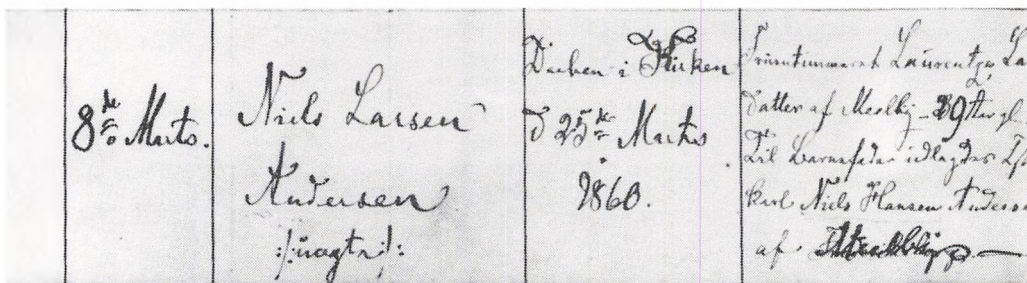 8de Marts.
Niels Larsen
Andersen
/:uægte:/
Døbt i Kirken
d 25de Marts
1860.
Fruentimmeret Laurentze La
Datter af Meelby 39 Aar gl
Til Barnefader udlagdes
karl Niels Hansen Anderse
af